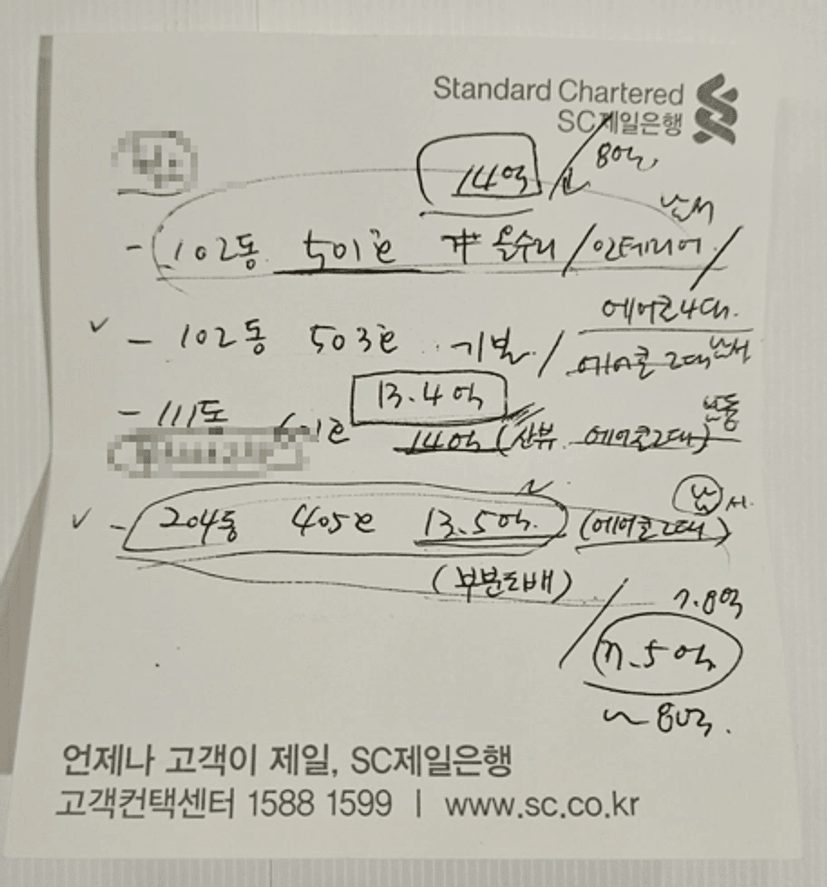 Standard Chartered
SC제일은행
14억 / 8억
남서
- 102동 501호 올수리 / 인테리어 /
에어콘4대.
✓ - 102동 503호 기본 / 에어콘 2대 남서
13.4억
- 111동 14억 (산뷰 에어콘2대) 남동
✓ - 204동 405호 13.5억. (에어콘2대) 남서
(부분도배)
/ 7.8억
7.5억
~ 8억.
언제나 고객이 제일, SC제일은행
고객컨택센터 1588 1599 | www.sc.co.kr